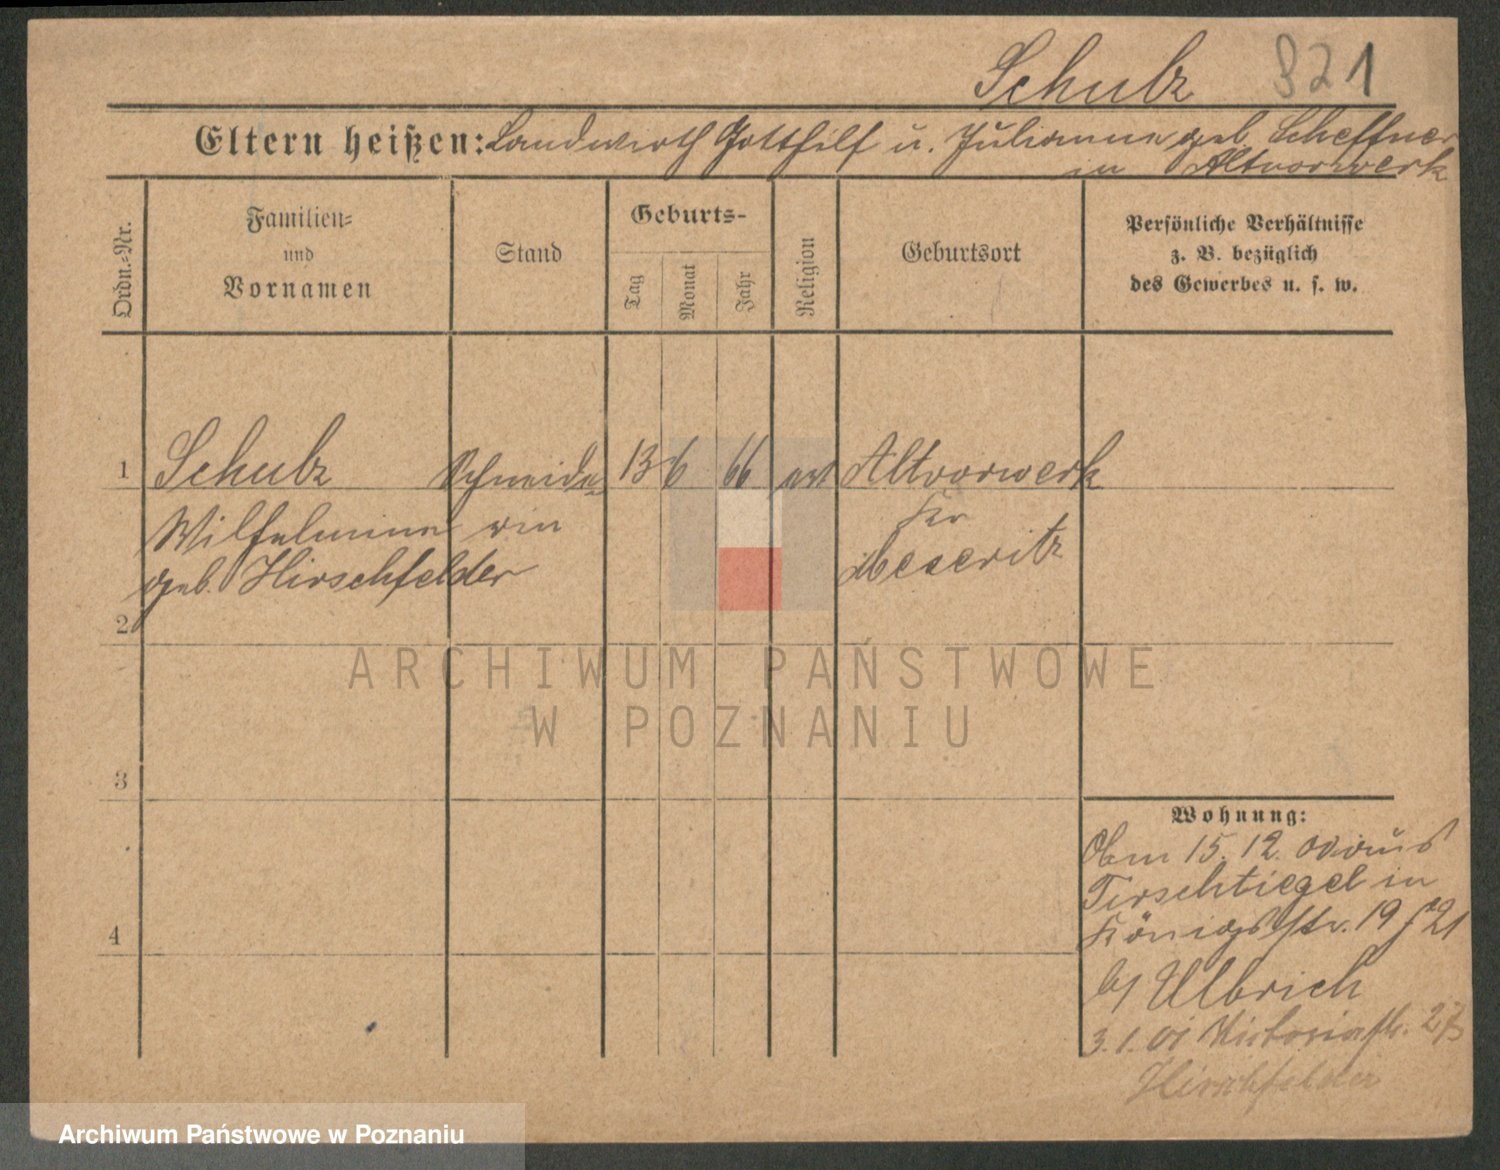 Schulz 821
Eltern heißen: Landwirth Gotthilf u. Julianna geb. Scheffner
in Altvorwerk
Ordn.-Nr.
Familien- und Vornamen
Stand
Geburts-
Tag
Monat
Jahr
Religion
Geburtsort
Persönliche Verhältnisse
z. B. bezüglich
des Gewerbes u. s. w.
1 Schulz Schneide 13 6 66 Altvorwerk
Wilhelmine rin Kr
geb. Hirschfelder Meseritz
2
ARCHIWUM PAŃSTWOWE
W POZNANIU
3
Wohnung:
15. 12. 00 aus
Tirschtiegel in
4
Königsstr. 19 21
b/ Ulbrich
3. 1. 01 Victoriastr. 27
Hirschfelder
Archiwum Państwowe w Poznaniu